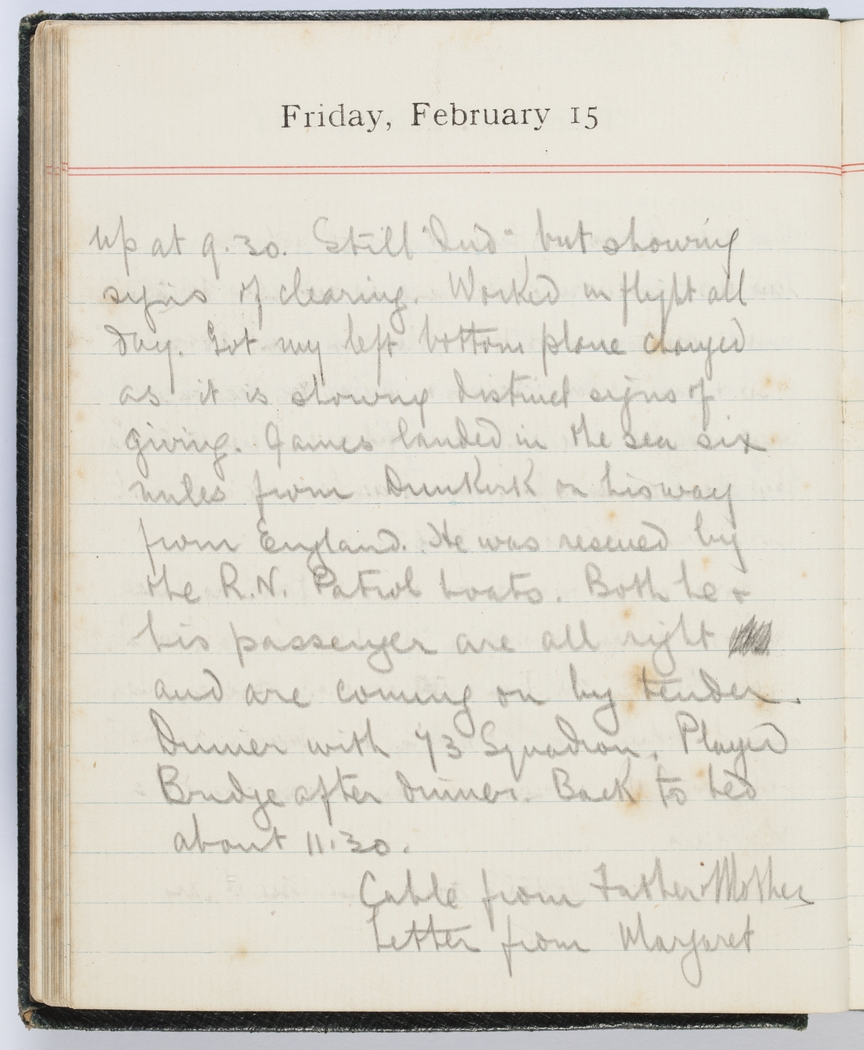 Friday, February 15
up at 9.30. Still "dud" but showing
signs of clearing. Worked in flight all
day. Got my left bottom plane changed
as it is showing distinct signs of
giving. James landed in the sea six
miles from Dunkirk on his way
from England. He was rescued by
the R.N. Patrol boats. Both he +
his passenger are all right
and are coming on by tender.
Dinner with 73 Squadron. Played
Bridge after dinner. Back to bed
about 11.30.
Cable from Father + Mother
Letter from Margaret